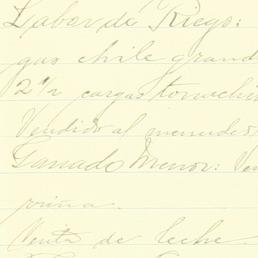 Labor de Riego:
gas chile grand
2 1/2 cargas
Vendido al menudeo
Ganado Menor: Ve
Venta de leche